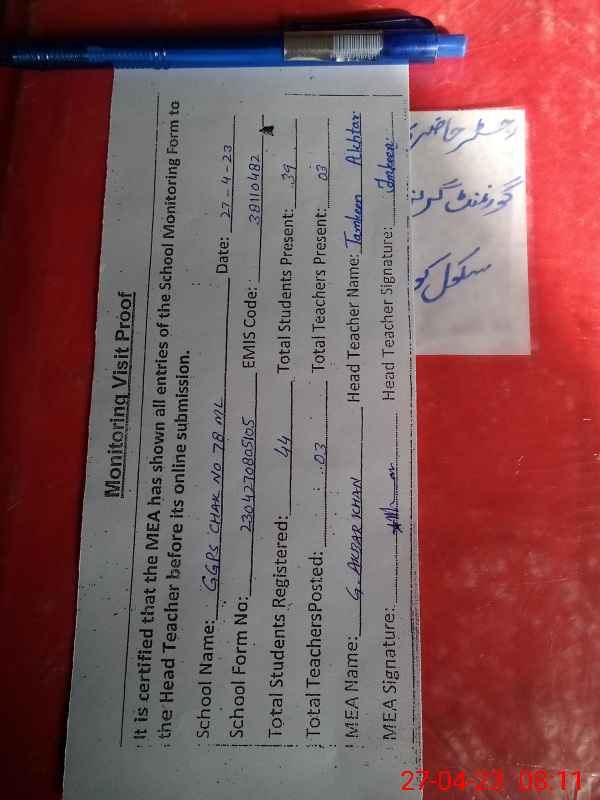 Monitoring Visit Proof
It is certified that the MEA has shown all entries of the School Monitoring Form to
the Head Teacher before its online submission.
School Name: GGPS CHAK NO 78 ML Date: 27-4-23
School Form No: 2304270805105 EMIS Code: 38110482
Total Students Registered: 44 Total Students Present: 39
Total TeachersPosted: 03 Total Teachers Present: 03
MEA Name: G. AKBAR KHAN Head Teacher Name: Tamkeen Akhtar
MEA Signature: Head Teacher Signature: Tamkeen
رجسٹر حاضری
گورنمنٹ گرلز
سکول
27-04-23 08:11